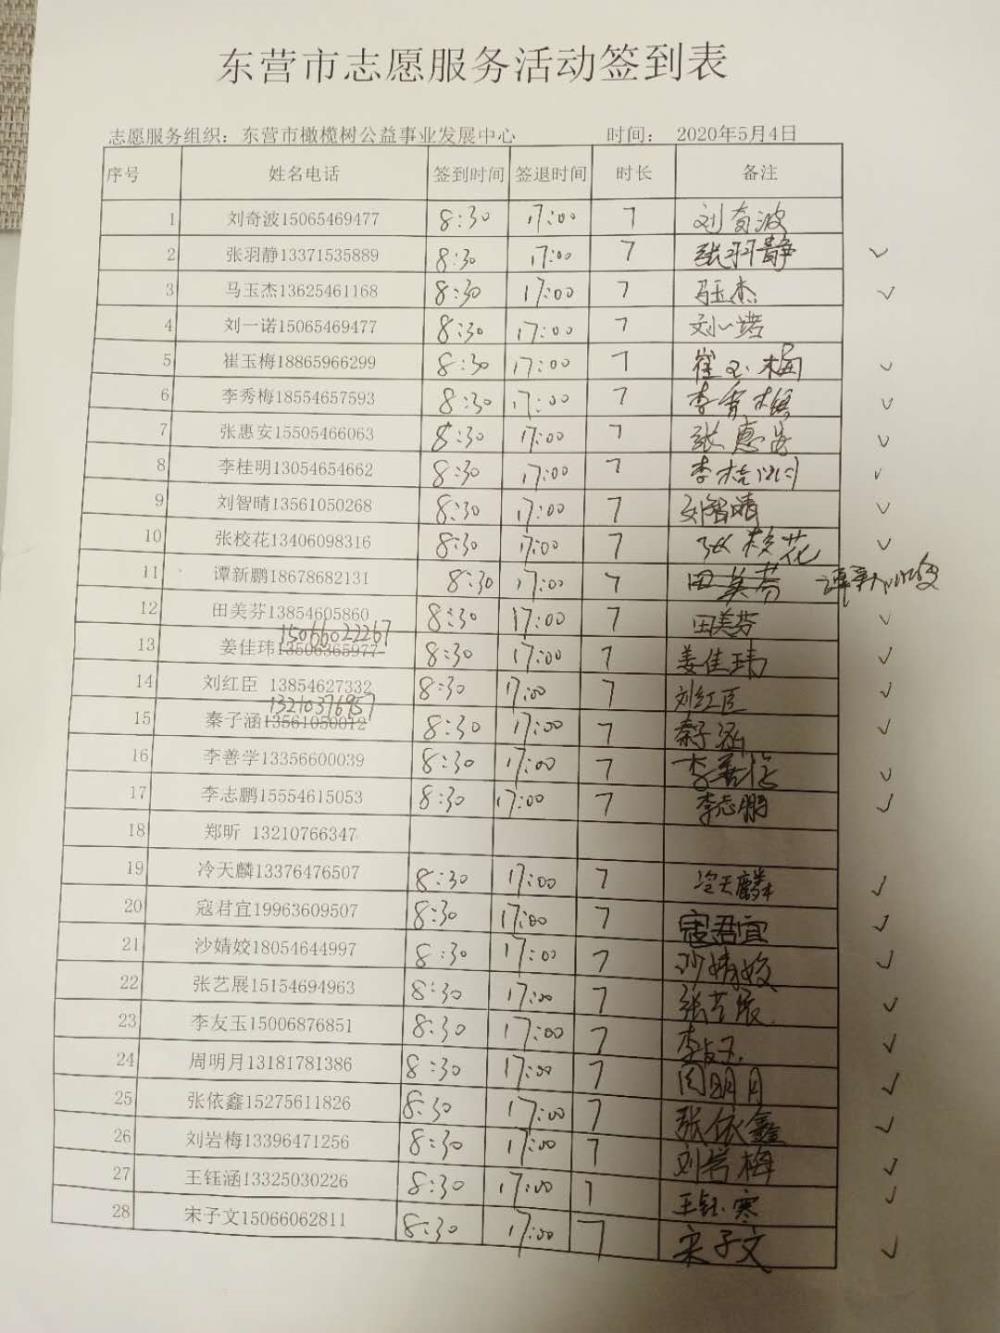 东营市志愿服务活动签到表
志愿服务组织：东营市橄榄树公益事业发展中心 时间： 2020年5月4日
序号 姓名电话 签到时间 签退时间 时长 备注
1 刘奇波15065469477 8:30 17:00 7 刘奇波
2 张羽静13371535889 8:30 17:00 7 张羽静 ✓
3 马玉杰13625461168 8:30 17:00 7 马玉杰 ✓
4 刘一诺15065469477 8:30 17:00 7 刘一诺
5 崔玉梅18865966299 8:30 17:00 7 崔玉梅 ✓
6 李秀梅18554657593 8:30 17:00 7 李秀梅 ✓
7 张惠安15505466063 8:30 17:00 7 张惠安 ✓
8 李桂明13054654662 8:30 17:00 7 李桂明 ✓
9 刘智晴13561050268 8:30 17:00 7 刘智晴 ✓
10 张校花13406098316 8:30 17:00 7 张校花 ✓
11 谭新鹏18678682131 8:30 17:00 7 田美芬 谭新
12 田美芬13854605860 8:30 17:00 7 田美芬 ✓
15066022267
13 姜佳玮13506365977 8:30 17:00 7 姜佳玮 ✓
14 刘红臣 13854627332 8:30 17:00 7 刘红臣 ✓
13210376957
15 秦子涵13561050012 8:30 17:00 7 秦子涵 ✓
16 李善学13356600039 8:30 17:00 7 李善学 ✓
17 李志鹏15554615053 8:30 17:00 7 李志鹏 ✓
18 郑昕 13210766347
19 冷天麟13376476507 8:30 17:00 7 冷天麟 ✓
20 寇君宜19963609507 8:30 17:00 7 寇君宜 ✓
21 沙婧姣18054644997 8:30 17:00 7 沙婧姣 ✓
22 张艺展15154694963 8:30 17:00 7 张艺展 ✓
23 李友玉15006876851 8:30 17:00 7 李友玉 ✓
24 周明月13181781386 8:30 17:00 7 周明月 ✓
25 张依鑫15275611826 8:30 17:00 7 张依鑫 ✓
26 刘岩梅13396471256 8:30 17:00 7 刘岩梅 ✓
27 王钰涵13325030226 8:30 17:00 7 王钰寒 ✓
28 宋子文15066062811 8:30 17:00 7 宋子文 ✓